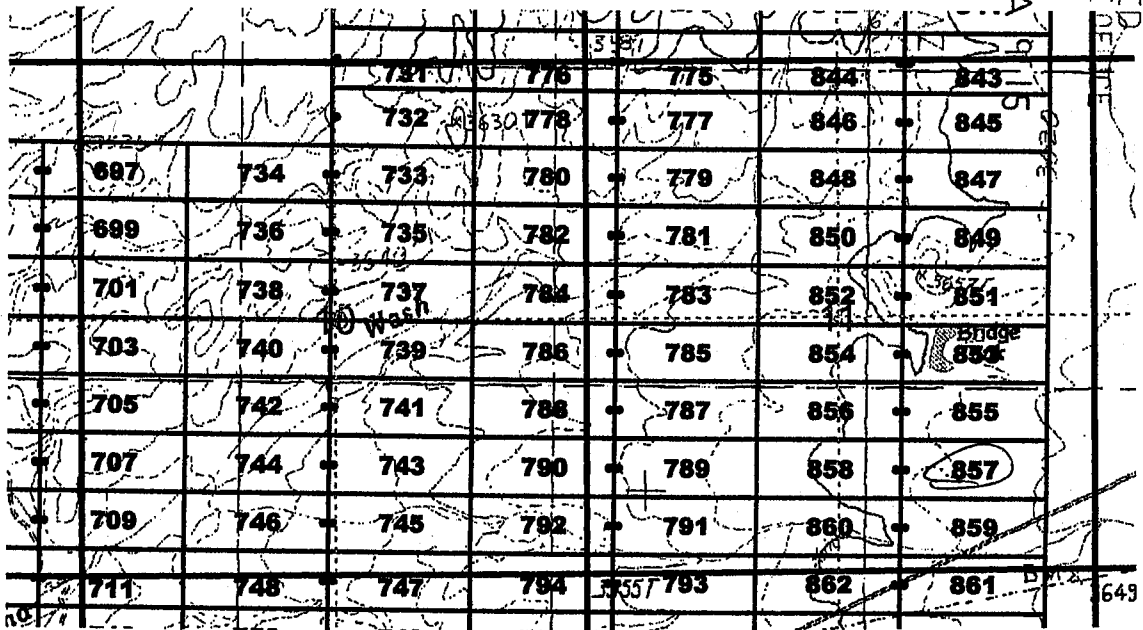 3481
731 776 775 844 843
15
732 3630T 778 777 846 845
697 734 733 780 779 848 847
699 736 735 782 781 850 849
701 738 737 784 783 852 851
Wash 11
Bridge
703 740 739 786 785 854 853
705 742 741 788 787 856 855
707 744 743 790 789 858 857
709 746 745 792 791 860 859
711 748 747 794 3555T 793 862 861
649